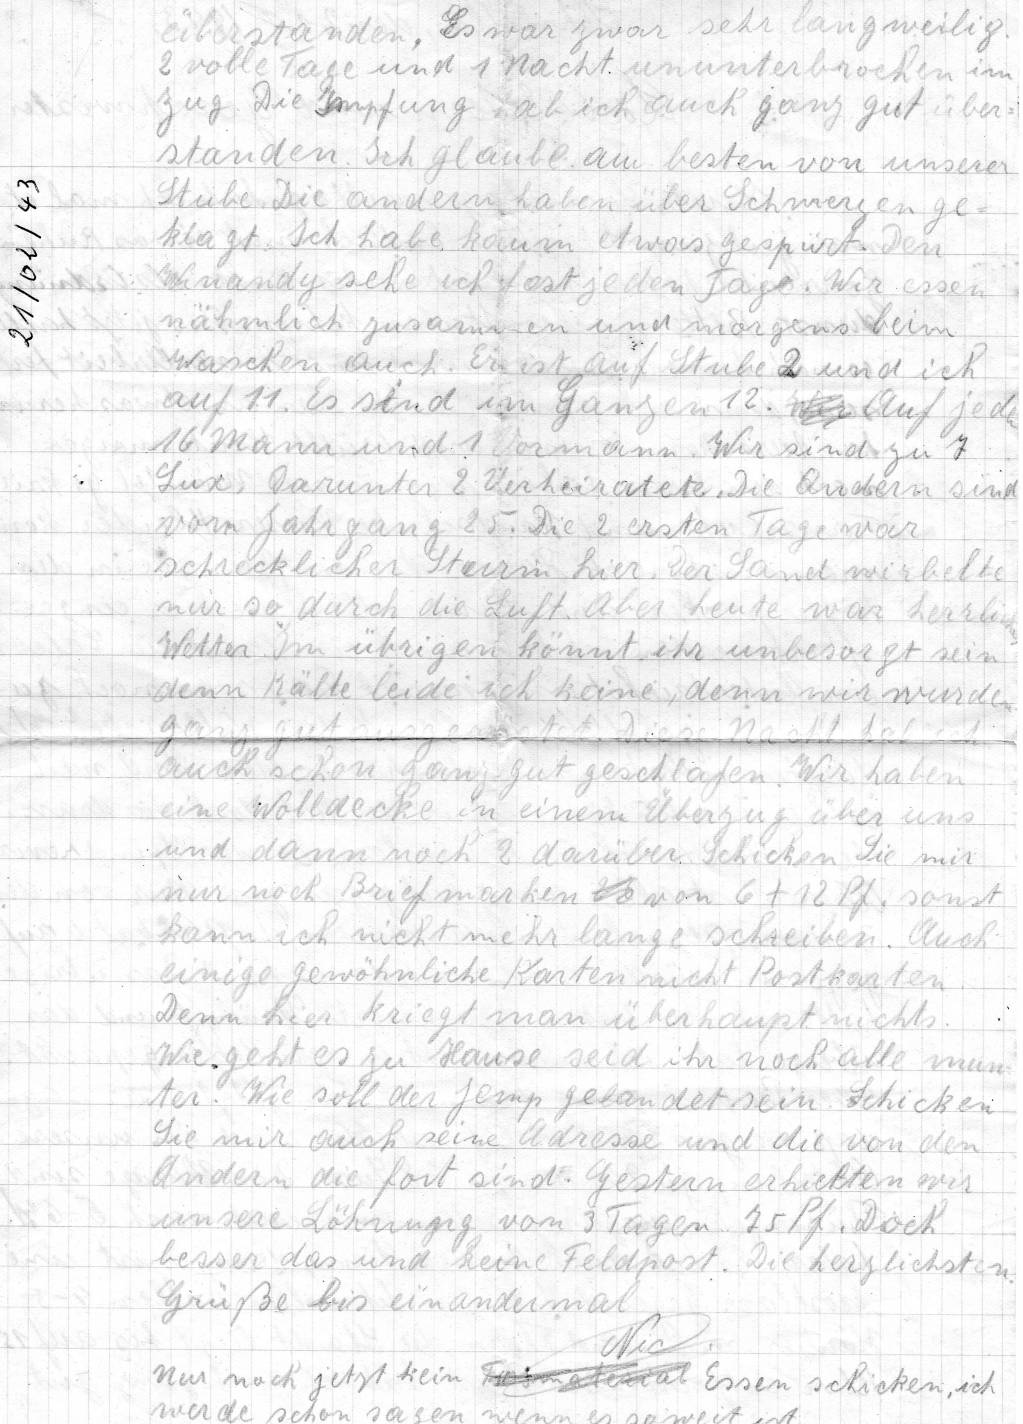 überstanden. Es war zwar sehr langweilig.
2 volle Tage und 1 Nacht ununterbrochen im
Zug. Die Impfung hab ich auch ganz gut über=
standen. Ich glaube am besten von unserer
Stube. Die andern haben über Schmerzen ge=
klagt. Ich habe kaum etwas gespürt. Den
Winandy sehe ich fast jeden Tage. Wir essen
nähmlich zusammen und morgens beim
waschen auch. Er ist auf Stube 2 und ich
auf 11. Es sind im Ganzen 12. Auf jede
16 Mann und 1 Vormann. Wir sind zu 7
Lux. Darunter 2 Verheiratete. Die Andern sind
vom Jahrgang 25. Die 2 ersten Tage war
schrecklicher Sturm hier. Der Sand wirbelte
nur so durch die Luft. Aber heute war herrliches
Wetter. Im übrigen könnt ihr unbesorgt sein
denn Kälte leide ich keine, denn wir wurden
ganz gut ausgerüstet. Diese Nacht hab ich
auch schon ganz gut geschlafen. Wir haben
eine Wolldecke in einem Überzug über uns
und dann noch 2 darüber. Schicken Sie mir
nur noch Briefmarken von 6 + 12 Pf. sonst
kann ich nicht mehr lange schreiben. Auch
einige gewöhnliche Karten nicht Postkarten
Denn hier kriegt man überhaupt nichts.
Wie geht es zu Hause seid ihr noch alle mun
ter. Wie soll der Jemp gelandet sein. Schicken
Sie mir auch seine Adresse und die von den
Andern die fort sind. Gestern erhielten wir
unsere Löhnung von 3 Tagen 75 Pf. Doch
besser das und keine Feldpost. Die herzlichsten
Grüße bis einandermal
Nic.
Nur noch jetzt kein Essen schicken, ich
werde schon sagen wenn es soweit ist
21/02/43